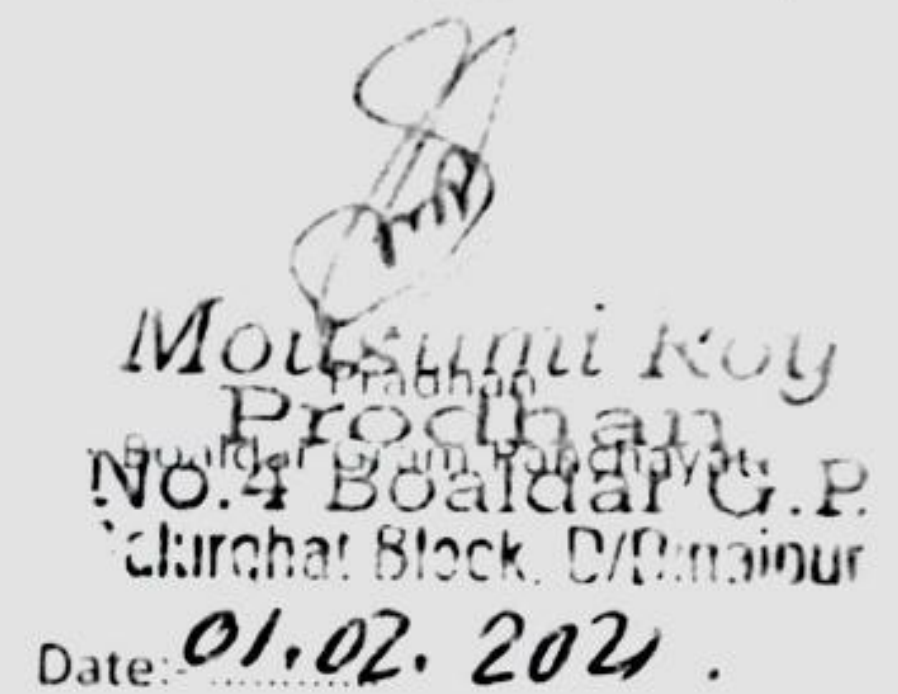 Mousumi Roy
Pradhan
Prodhan
Boaldar Gram Panchayat
No.4 Boaldar G.P.
Block, D/Dinajpur
Date:- 01.02.2021.